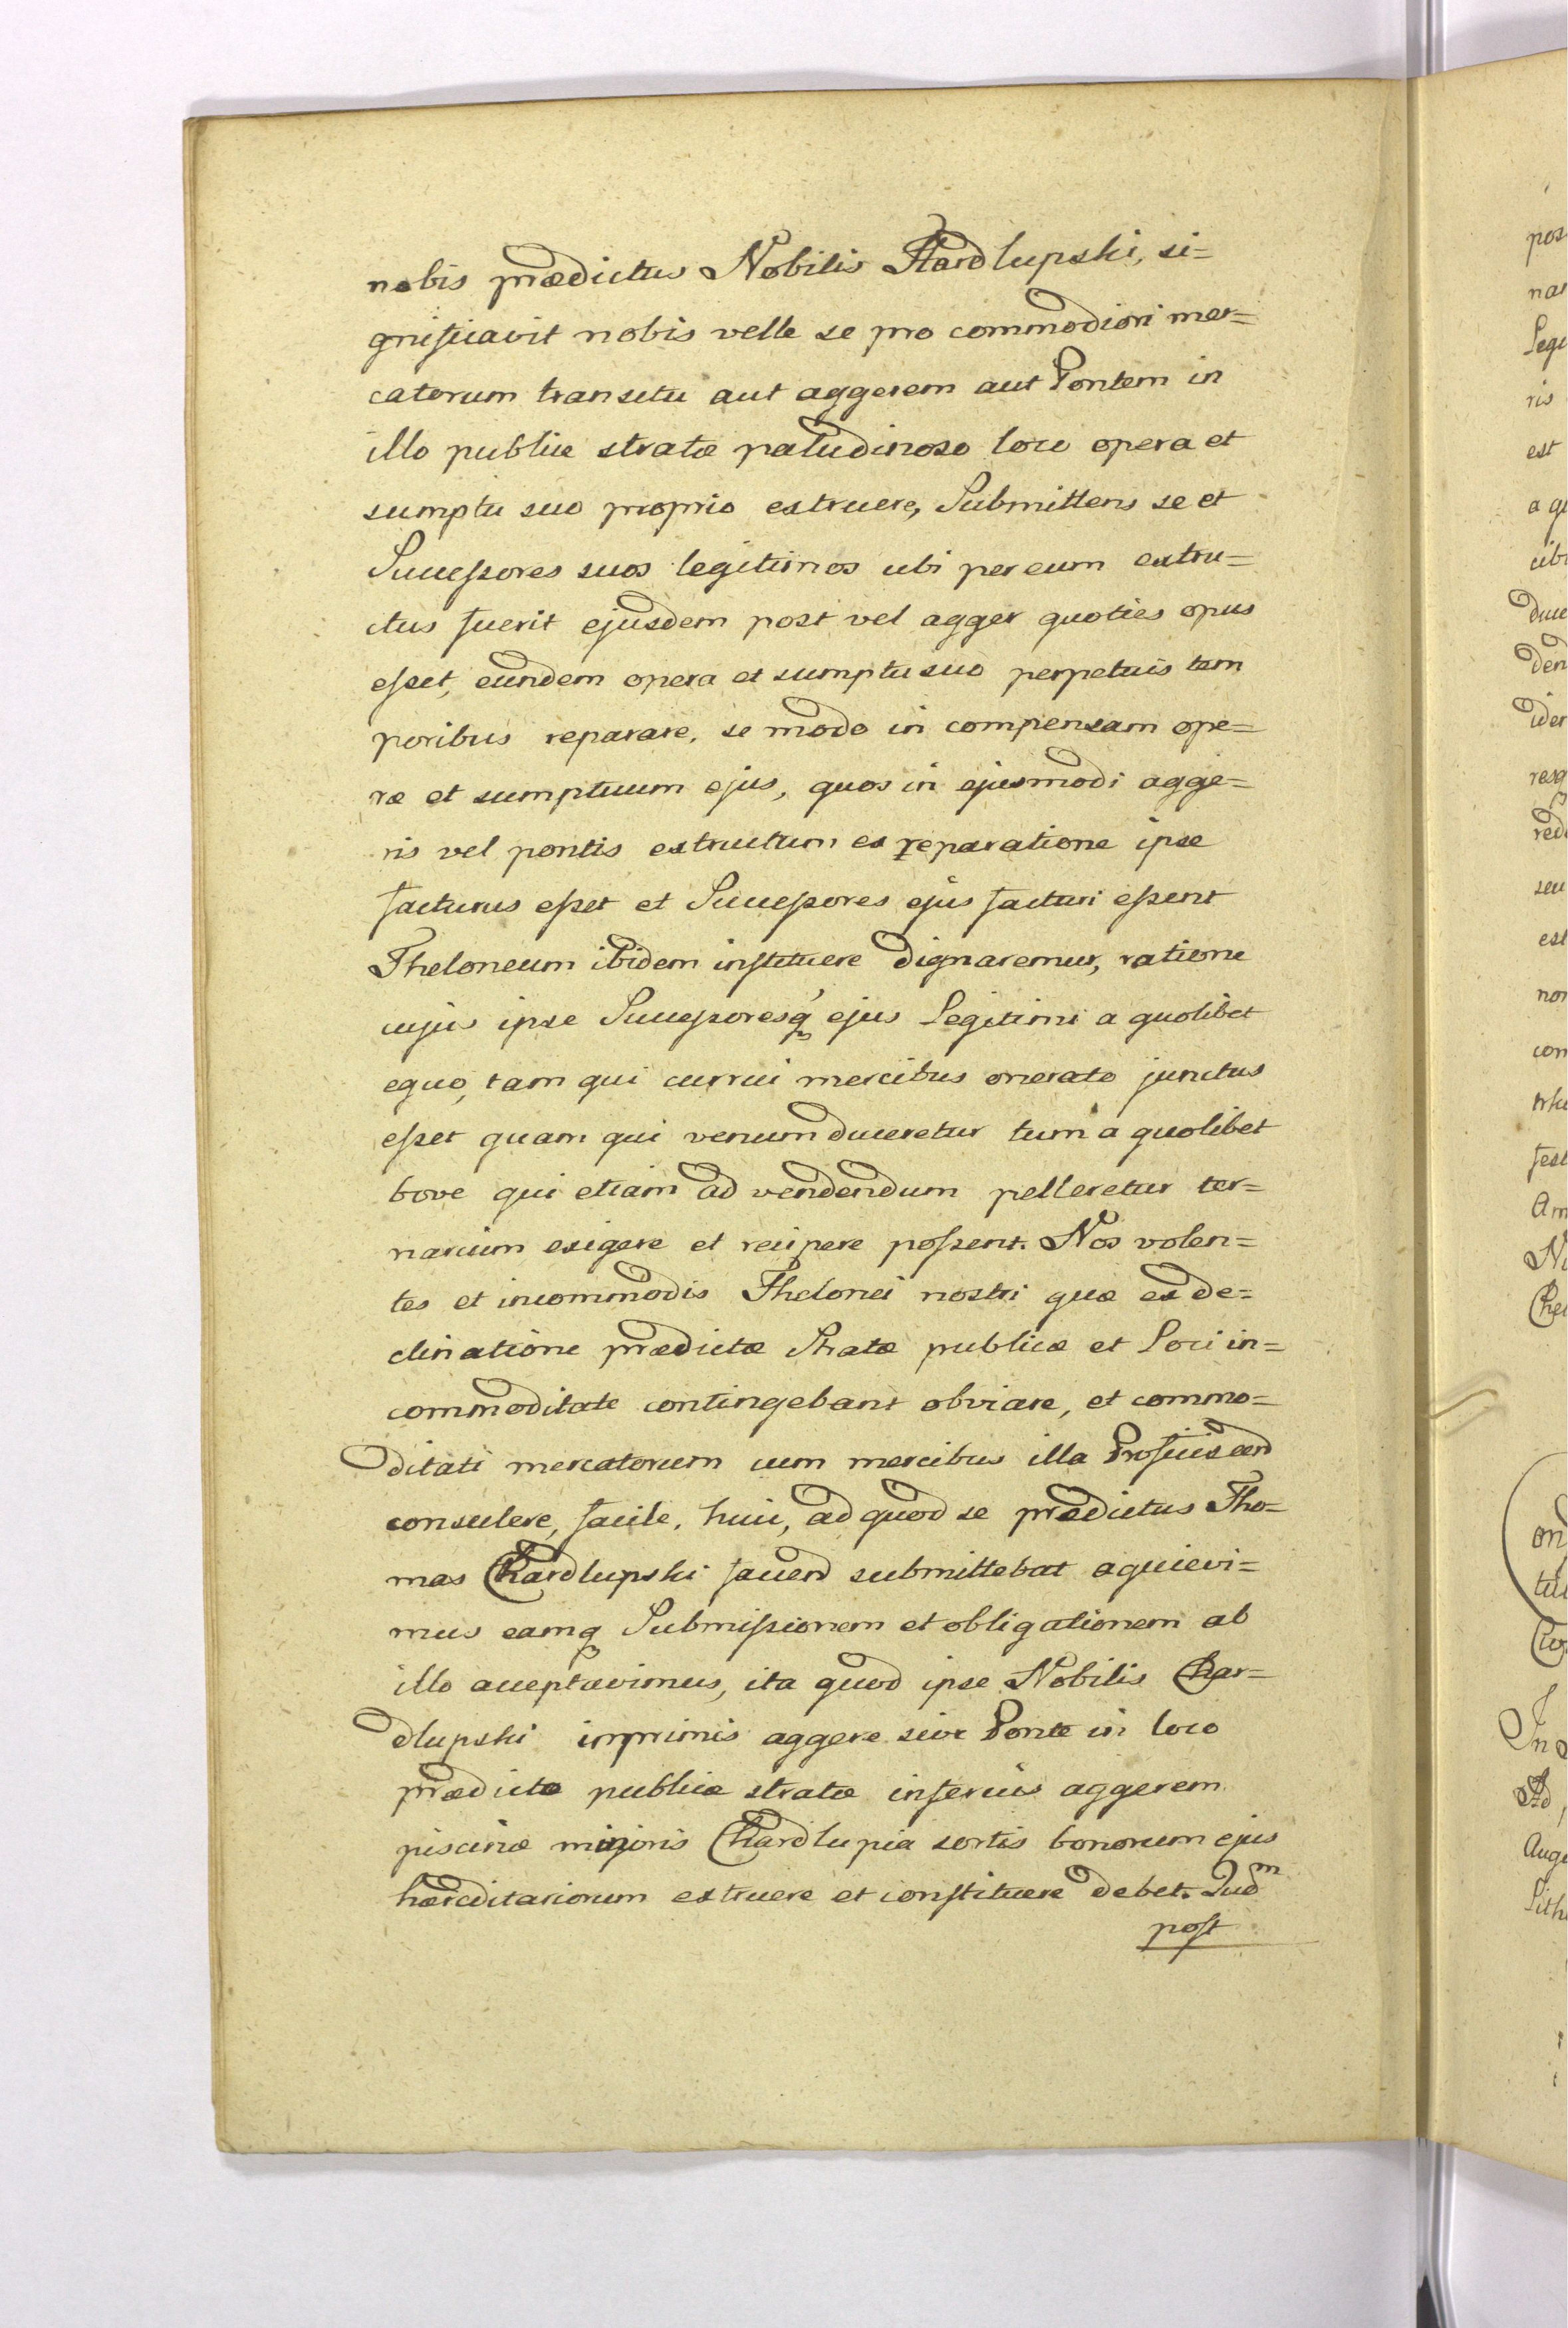 nobis prædictus Nobilis Hardlupski, si=
gnificavit nobis velle se pro commodiori mer=
catorum transitu aut aggerem aut Pontem in
illo publicæ stratæ paludinoso loco opera et
sumptu suo proprio extruere, Submittens se et
Successores suos legitimos ubi per eum extru=
ctus fuerit ejusdem post vel agger quoties opus
esset, eundem opera et sumptu suo perpetuis tem
poribus reparare, se modo in compensam ope=
ræ et sumptuum ejus, quos in ejusmodi agge=
ris vel pontis extructum ex reparatione ipse
facturus esset et Successores ejus facturi essent
Theloneum ibidem instituere dignaremur, ratione
cujus ipse Successoresq ejus Legitimi a quolibet
equo, tam qui currui mercibus onerato junctus
esset quam qui venum duceretur tum a quolibet
bove qui etiam ad vendendum pelleretur ter=
narium exigere et recipere possent. Nos volen=
tes et incommodis Thelonei nostri quæ ex de=
clinatione prædictæ Stratæ publicæ et Loci in=
commoditate contingebant obviare, et commo=
ditati mercatorum cum mercibus illa
consulere, facile, huic, ad quod se prædictus Tho=
mas Chardlupski facend submittebat aquievi=
mus eamq Submissionem et obligationem ab
illo acceptavimus, ita quod ipse Nobilis Char=
dlupski imprimis aggere sive Ponte in loco
prædicto publicæ stratæ inferius aggerem
piscinæ majoris Chardlupia sortis bonorum ejus
hæreditariorum extruere et constituere debet. Qud^m
post